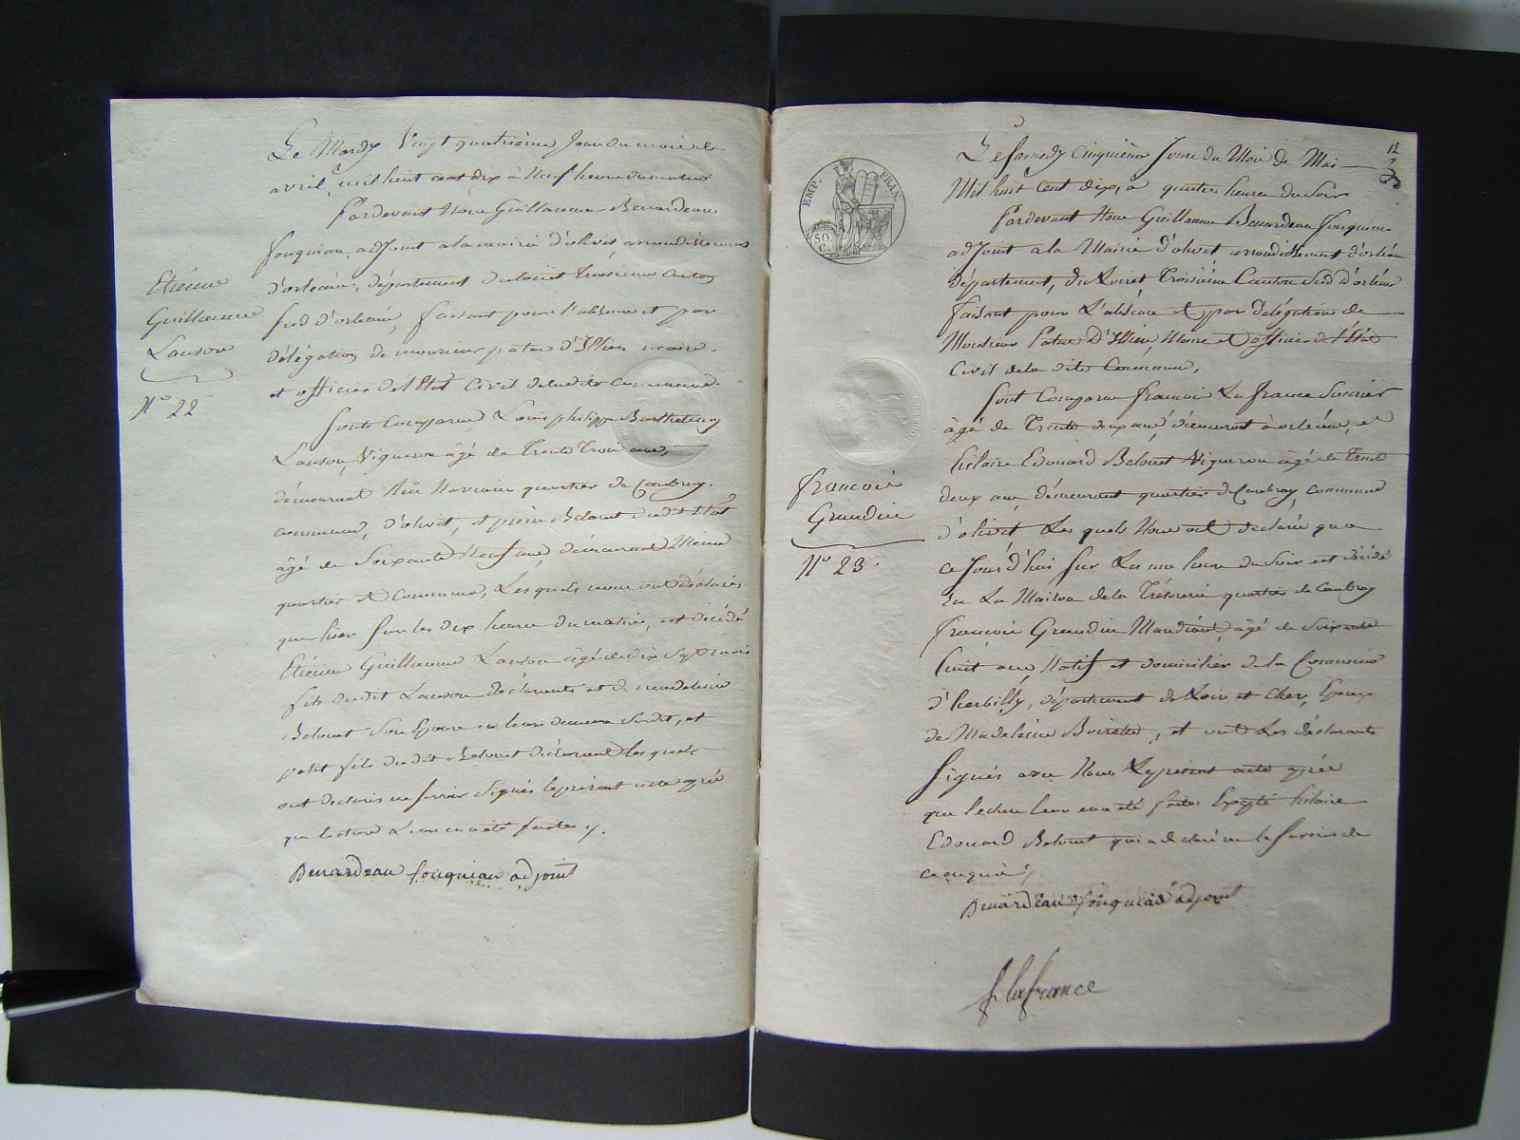 Etienne
Guillaume
Lauson
N° 22
Le Mardy Vingt quatrieme Jour du mois de
avril, mil huit cent dix à Neuf heure du matin
Pardevant Nous Guillaume Benardeau
fouquiau adjoint a la mairie d'olivet arrondissement
d'orleans, département du loiret troisieme canton
sud d'orleans, faisant pour l'absence et par
délégation de monsieur patas d'Illiers maire
et officier de l'Etat Civil de ladite Commune
sont Comparus Louis philippe Barthelemy
Lauson Vigneron âgé de Trente Trois ans,
démeurant quartier de Coubray
commune d'olivet, et pierre Belouet dudit Etat
âgé de Soixante Neuf ans démeurant Meme
quartier et Commune, Lesquels nous ont déclarés
que hier sur les dix heure du matin, est décédé
Etienne Guillaume Lauson âgé de dix Sept mois
fils dudit Lauson déclarant et de madelaine
Belouet Son Epouse en leur demeure Susdit, et
petit fils dudit Belouet déclarant, les quels
ont déclarés ne savoir Signés le présent acte après
que lecture Leur en a été faite
Benardeau fouquiau adjoint
EMP. FRAN.
50
C.
12
francois
Grandin
N° 23
Le Samedy cinquieme Jour du Mois de Mai
Mil huit Cent dix, a quatre heure du Soir
Pardevant Nous Guillaume Benardeau fouquiau
adjoint a la Mairie d'olivet arrondissement d'orléans
département, du Loiret Troisiéme Canton Sud d'orléans
faisant pour L'absence et par delégation de
Monsieur Patas d'Illiers, Maire et officier de l'État
Civil de la dite Commune,
Sont Comparus francois La france
âgé de Trente deux ans, démeurant à orléans, et
hilaire Edouard Belouet Vigneron âgé de Trente
deux ans démeurant quartier de Coubray, commune
d'olivet Les quels Nous ont declaré que
ce Jourd'hui sur Les une heure du Soir est décédé
en La Maison de la Trésorerie quartier de Coubray
François Grandin Mandiant, âgé de Soixante
huit ans, Natif et domicilier de la Commune
d'herbilly, département de Loir et Cher, Epoux
de Madelaine, et ont Les déclarants
Signés avec Nous Le présent acte après
que lecture Leur en a été faite Excepté hilaire
Edouard Belouet qui a declaré ne le Savoir de
ce enquis,
Benardeau fouquiau adjoint
f lafrance